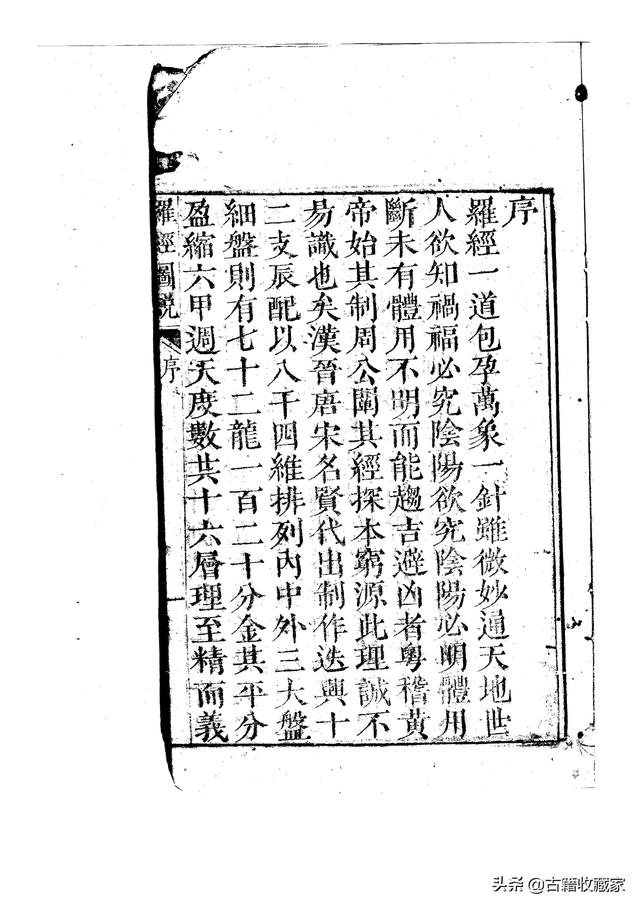 序
羅經一道包孕萬象一針雖微妙通天地世
人欲知禍福必究陰陽欲究陰陽必明體用
斷未有體用不明而能趨吉避凶者粤稽黄
帝始其制周公闡其經探本窮源此理誠不
易識也矣漢晉唐宋名賢代出制作迭興十
二支辰配以八干四維排列內中外三大盤
細盤則有七十二龍一百二十分金其平分
盈縮六甲週天度數共十六層理至精而義
羅經圖説
序
一
头条@古籍收藏家